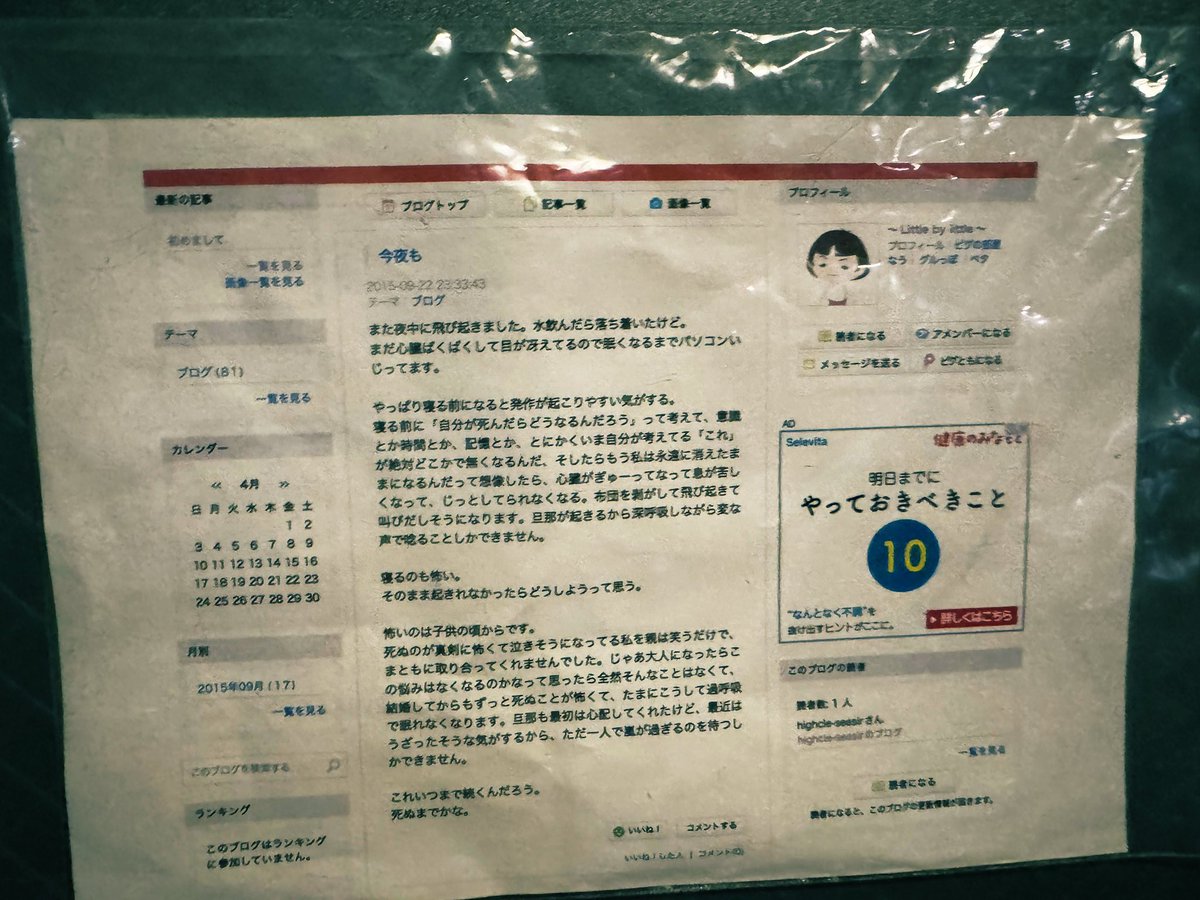 最新の記事
初めまして
一覧を見る
画像一覧を見る
テーマ
ブログ(81)
一覧を見る
カレンダー
≪ 4月 ≫
日 月 火 水 木 金 土
1 2
3 4 5 6 7 8 9
10 11 12 13 14 15 16
17 18 19 20 21 22 23
24 25 26 27 28 29 30
月別
2015年09月(17)
一覧を見る
このブログを検索する
ランキング
このブログはランキング
に参加していません。
ブログトップ
記事一覧
画像一覧
今夜も
2015-09-22 23:33:43
テーマ ブログ
また夜中に飛び起きました。水飲んだら落ち着いたけど。
まだ心臓ばくばくして目が冴えてるので眠くなるまでパソコンい
じってます。
やっぱり寝る前になると発作が起こりやすい気がする。
寝る前に「自分が死んだらどうなるんだろう」って考えて、意識
とか時間とか、記憶とか、とにかくいま自分が考えてる「これ」
が絶対どこかで無くなるんだ、そしたらもう私は永遠に消えたま
まになるんだって想像したら、心臓がぎゅーってなって息が苦し
くなって、じっとしてられなくなる。布団を剥がして飛び起きて
叫びだしそうになります。旦那が起きるから深呼吸しながら変な
声で唸ることしかできません。
寝るのも怖い。
そのまま起きれなかったらどうしようって思う。
怖いのは子供の頃からです。
死ぬのが真剣に怖くて泣きそうになってる私を親は笑うだけで、
まともに取り合ってくれませんでした。じゃあ大人になったらこ
の悩みはなくなるのかなって思ったら全然そんなことはなくて、
結婚してからもずっと死ぬことが怖くて、たまにこうして過呼吸
で眠れなくなります。旦那も最初は心配してくれたけど、最近は
うざったそうな気がするから、ただ一人で嵐が過ぎるのを待つし
かできません。
これいつまで続くんだろう。
死ぬまでかな。
いいね！ コメントする
いいね！した人 | コメント(0)
プロフィール
～ Little by little ～
プロフィール ピグの部屋
なう グルっぽ ペタ
読者になる
アメンバーになる
メッセージを送る
ピグともになる
AD
Selevita
健康のみなもと
明日までに
やっておきべきこと
10
"なんとなく不調"を
抜け出すヒントがここに。
詳しくはこちら
このブログの読者
読者数: 1 人
highcle-seesirさん
highcle-seesirのブログ
一覧を見る
読者になる
読者になると、このブログの更新情報が届きます。